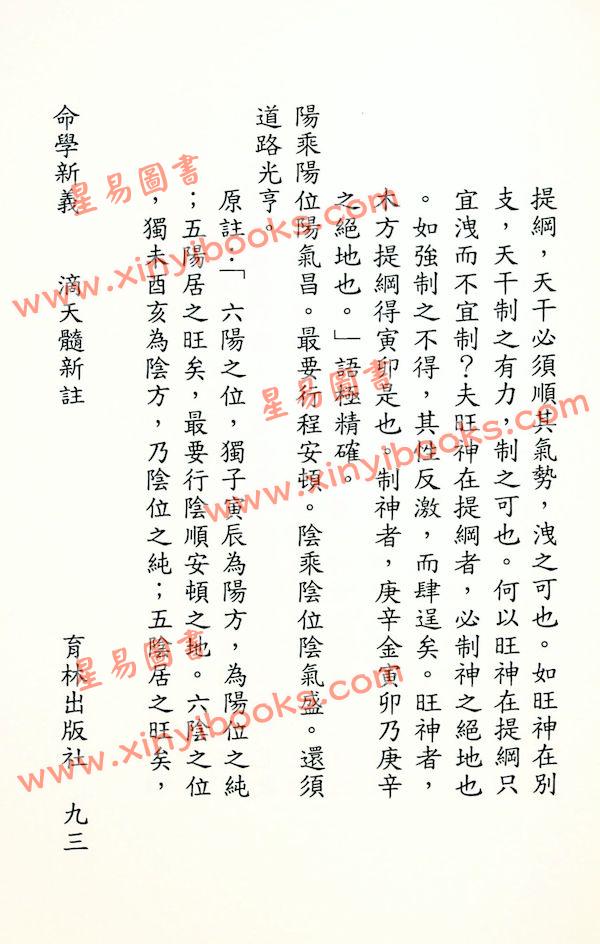 提綱，天干必須順其氣勢，洩之可也。如旺神在別
支，天干制之有力，制之可也。何以旺神在提綱只
宜洩而不宜制？夫旺神在提綱者，必制神之絕地也
。如強制之不得，其性反激，而肆逞矣。旺神者，
木方提綱得寅卯是也。制神者，庚辛金寅卯乃庚辛
之絕地也。」語極精確。
陽乘陽位陽氣昌。最要行程安頓。陰乘陰位陰氣盛。還須
道路光亨。
原註：「六陽之位，獨子寅辰為陽方，為陽位之純
；五陽居之旺矣，最要行陰順安頓之地。六陰之位
，獨未酉亥為陰方，乃陰位之純；五陰居之旺矣，
命學新義 滴天髓新註 育林出版社 九三
星易圖書
www.xinyibooks.com
星易圖書
www.xinyibooks.com
星易圖書
www.xinyibooks.com